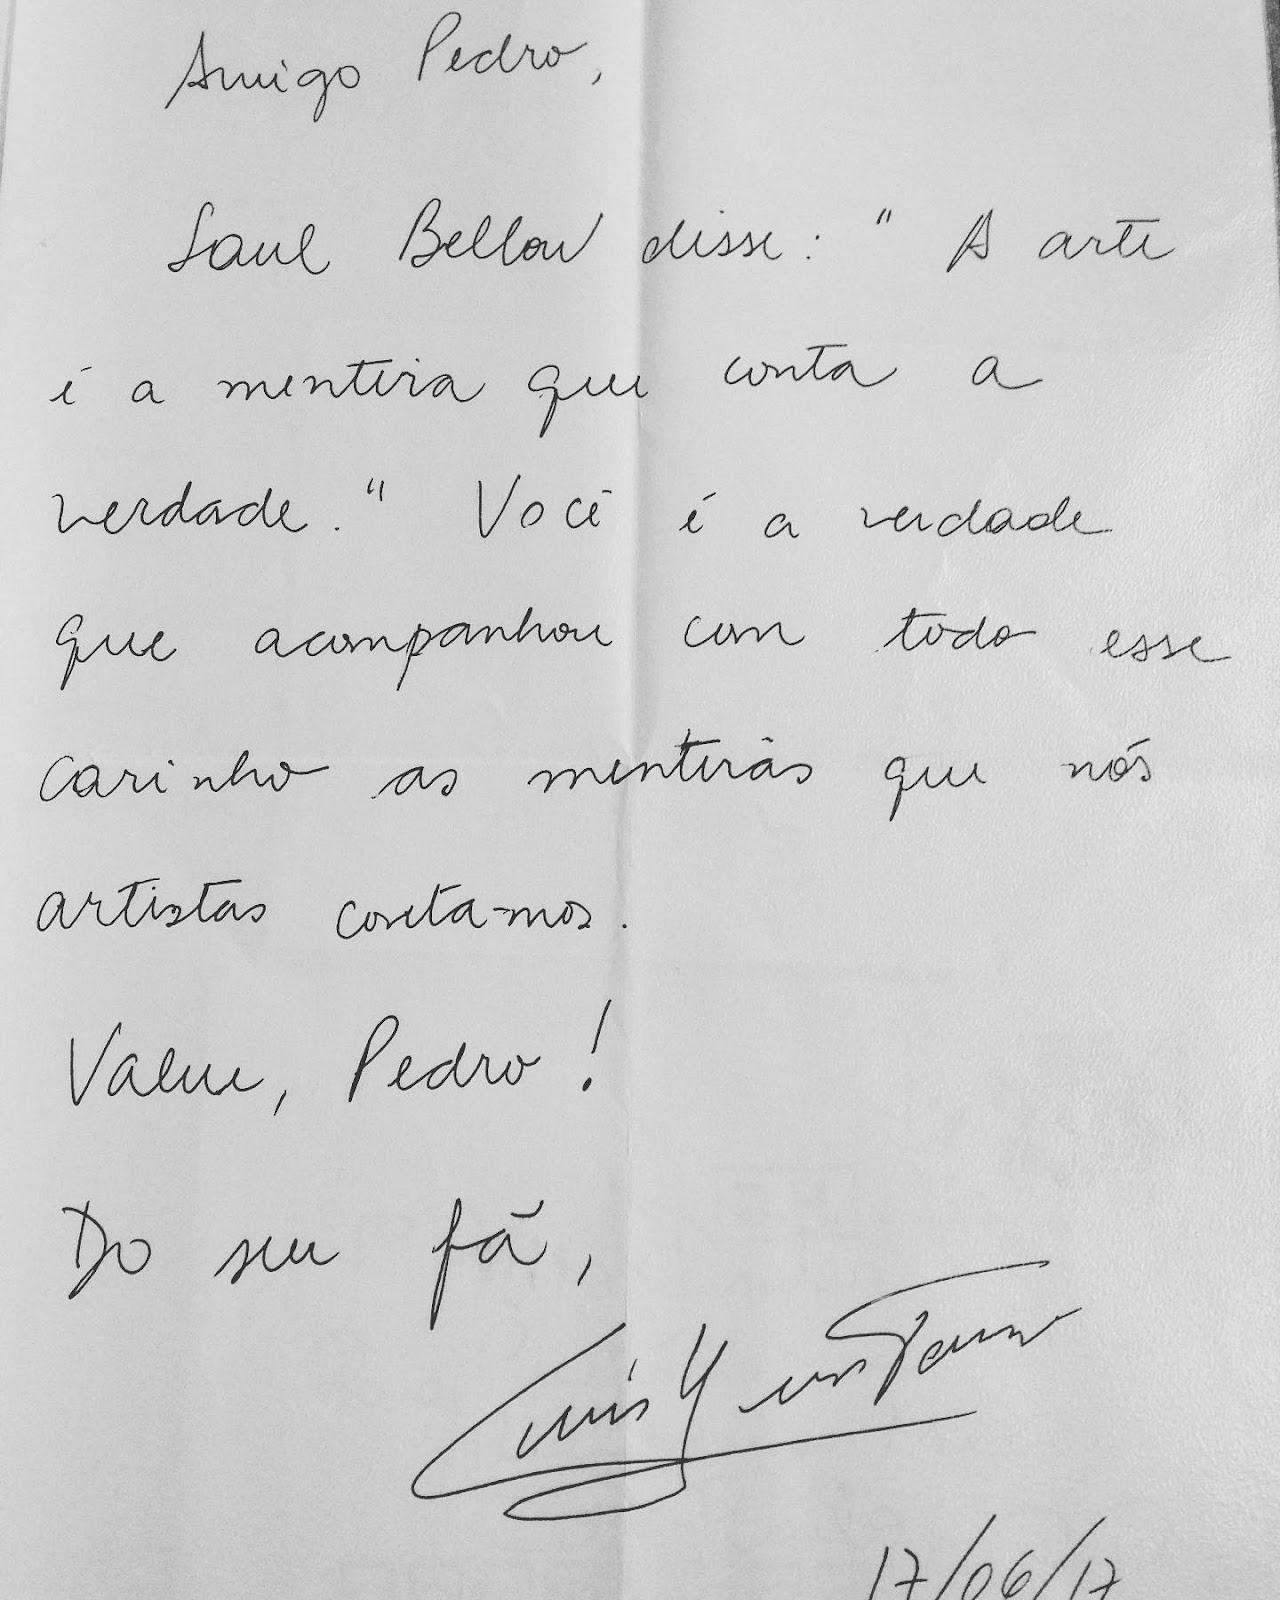 Amigo Pedro,
Saul Bellow disse: " A arte
é a mentira que conta a
verdade." Você é a verdade
que acompanhou com todo esse
carinho as mentiras que nós
artistas contamos.
Valeu, Pedro!
Do seu fã,
Luis Gustavo
17/06/17